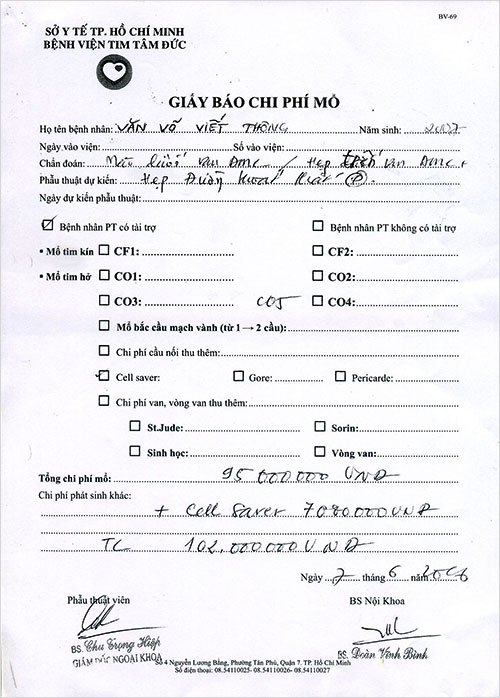 BV-69
SỞ Y TẾ TP. HỒ CHÍ MINH
BỆNH VIỆN TIM TÂM ĐỨC
GIẤY BÁO CHI PHÍ MỔ
Họ tên bệnh nhân: VĂN VÕ VIẾT THÔNG Năm sinh:
Ngày vào viện: Số vào viện:
Chẩn đoán: van ĐMC / Hẹp van ĐMC +
Phẫu thuật dự kiến: Hẹp Đường thoát thất (P)
Ngày dự kiến phẫu thuật:
Bệnh nhân PT có tài trợ Bệnh nhân PT không có tài trợ
• Mổ tim kín CF1: CF2:
• Mổ tim hở CO1: CO2:
CO3: CO5 CO4:
Mổ bắc cầu mạch vành (từ 1 → 2 cầu):
Chi phí cầu nối thu thêm:
Cell saver: Gore: Pericarde:
Chi phí van, vòng van thu thêm:
St.Jude: Sorin:
Sinh học: Vòng van:
Tổng chi phí mổ: 95 000 000 VNĐ
Chi phí phát sinh khác:
+ Cell Saver 7080000 VNĐ
TC 102.000000 VNĐ
Ngày 2 tháng 6 năm
Phẫu thuật viên BS Nội Khoa
BS. Chu Trọng Hiệp
GIÁM ĐỐC NGOẠI KHOA
BS. Đoàn Vĩnh Bình
Số 4 Nguyễn Lương Bằng, Phường Tân Phú, Quận 7. TP. Hồ Chí Minh
Số điện thoại: 08.54110025- 08.54110026- 08.54110027